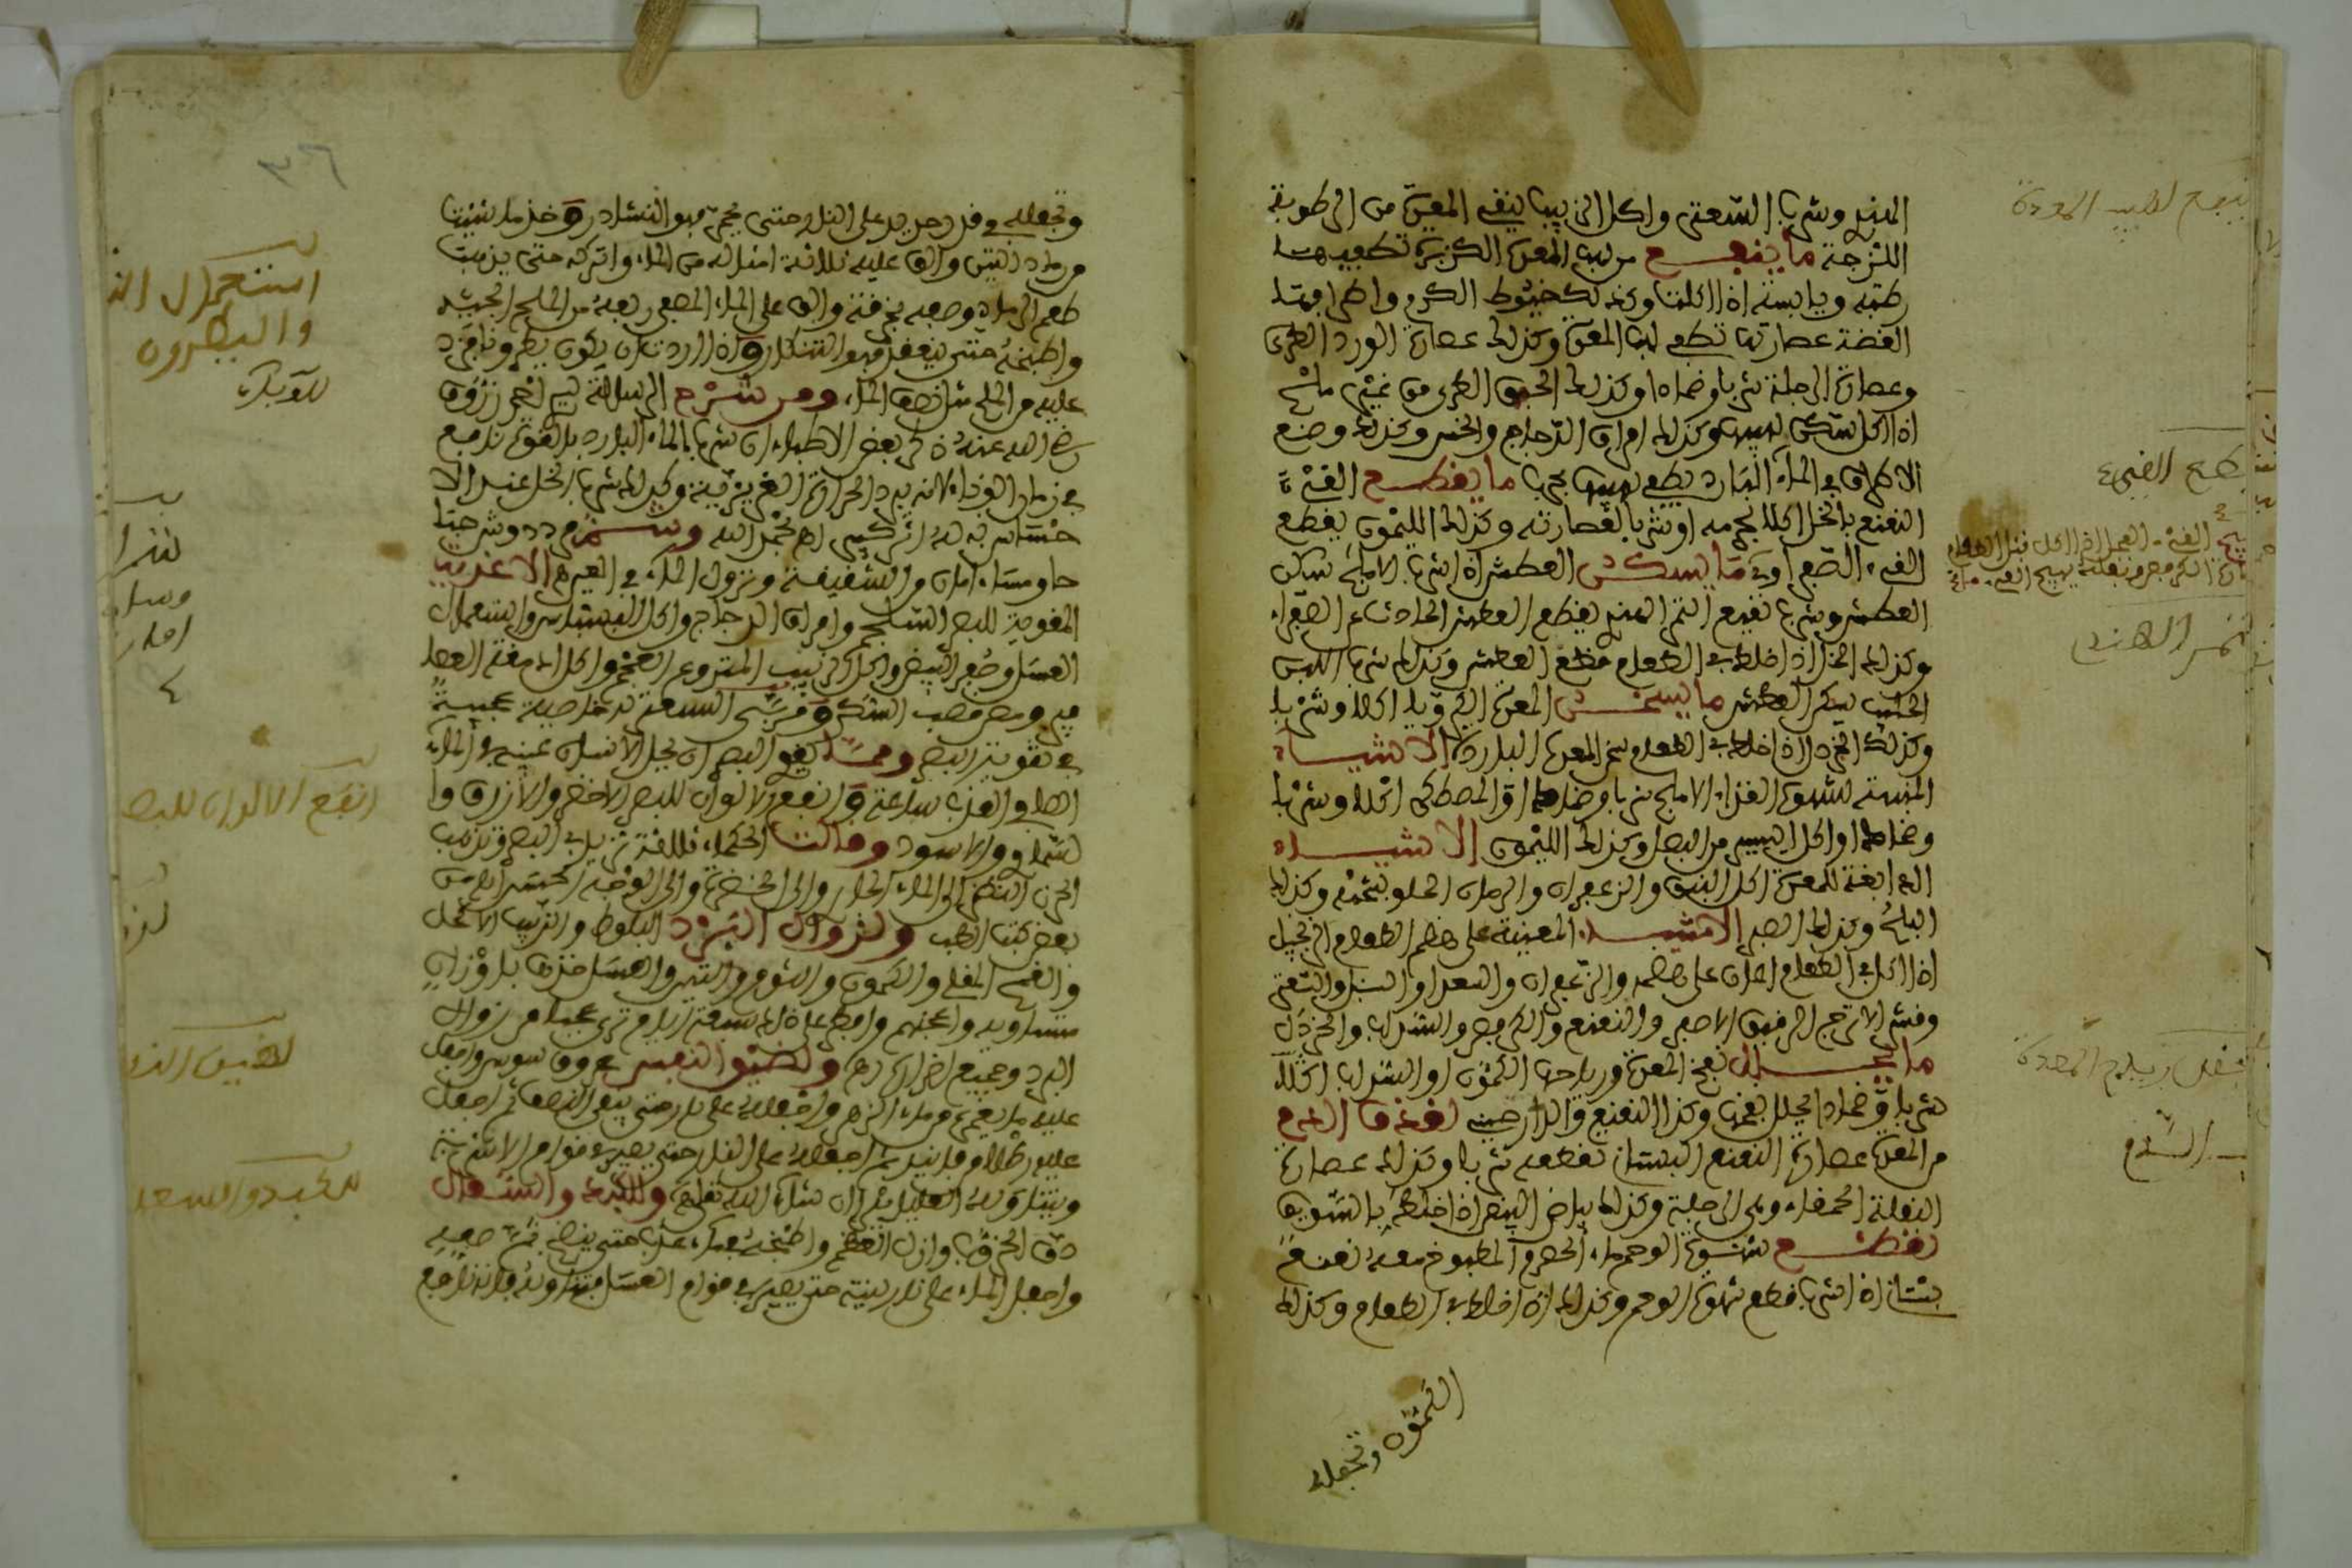 الهندي وشرب السعتر واكل الزبيب ينقي المعدة من الرطوبة
اللزجة ما ينفع من لهيب المعدة الكزبرة تطفيه
رطبة ويابسة اذا اكلت وكذلك خيوط الكرم واطرافها
الغضة عصارتها تطفي لهب المعدة وكذلك عصارة الورد الطري
وعصارة الرجلة شربا وضمادا وكذلك الحبق الطري من غير ملح
اذا اكل سكن لهيبها وكذلك امراق الدجاج والخس وكذلك وضع
الاطراف في الماء البارد يطفي لهيبها مجرب ما يقطع القيء
النعنع بالخل اكلا بجرمه او شربا لعصارته وكذلك الليمون يقطع
القيء الصفراوي ما يسكن العطش اذا شرب الاملج سكن
العطش وشرب نقيع التمر الهندي يقطع العطش الحادث عن الصفراء
وكذلك الخل اذا خلط في الطعام قطع العطش وكذلك شرب اللبن
الحليب يسكن العطش ما يسخن المعدة الكرويا اكلا وشربا
وكذلك الخردل اذا خلط في الطعام سخن المعدة الباردة الاشياء
المنبهة لشهوة الغذاء الاملج شربا وضمادا والمصطكى اكلا وشربا
وضمادا واكل اليسير من البصل وكذلك الليمون الاشياء
الدابغة للمعدة اكل النبق والزعفران والرمان الحلو بشحمه وكذلك
البلح وكذلك الصبر الاشياء المعينة على هضم الطعام الزنجبيل
اذا اكل في الطعام اعان على هضمه والزعفران والسعد او السنبل والسعتر
وقشر الاترج الرقيق الاصفر والنعنع والكرفس والشراب والخردل
ما يحلل نفخ المعدة ورياحها الكمون او الشراب اكلا
شربا وضمادا يحلل نفخها وكذا النعنع والدارصيني لقذف الدم
من المعدة عصارة النعنع البستاني تقطعه شربا وكذلك عصارة
البقلة الحمقاء وهي الرجلة وكذلك بياض البيض اذا خلط بالسويق
لقطع شهوة الوحم ماء الحصرم المطبوخ معه نعنع
بستاني اذا شرب قطع شهوة الوحم وكذلك اذا خلط في الطعام وكذلك
الكمون وتجعله
قطع القيء
التمر الهندي
وتجعله في قدر جديد على النار حتى يحمر فهو النشادر وخذ ما شئت
من رماد التين والق عليه ثلاثة امثاله من الماء واتركه حتى يذهب
طعم الرماد وصفه بخرقة والق على الماء المصفى ربعه من الملح الجيد
واطبخه حتى ينعقد فهو التنكار واذا اردت ان يكون بطرونا فزد
عليه من الملح مثل نصف الماء ومن شرح الرسالة لسيدي احمد زروق
رضي الله عنه ذكر بعض الاطباء ان شرب الماء البارد بالقوة نافع
في زمان الوباء لانه يبرد الحرارة الغريزية وكذلك شرب الخل عند الا
حساس به له اثر كبير اهـ بحمد الله
صباحا ومساء امان من الشقيقة ونزول الماء في العين الاغذية
المقوية للبصر السلجم وامراق الدجاج واكل البسباس واستعمال
العسل وصفر البيض واكل الزبيب المنزوع العجم واكل ادمغة العصا
فير ومص قصب السكر وفي السعتر خاصية عجيبة
في تقوية البصر ومما يقوي البصر ان يحل الانسان عينيه في الماء
الصافي العذب ساعة وانفع الالوان للبصر الاخضر والازرق وا
لسماوي والاسود وقالت الحكماء ثلاثة تزيد في البصر وتذهب
الحزن النظر الى الماء الجاري والى الخضرة والى الوجه الحسن اهـ من
بعض كتب الطب ولزوال البرد البلوط والزبيب الاكحل
والقمح المقلي والكمون والثوم والتين والعسل خذها باوزان
متساوية واعجنهم وافطر على ذلك سبعة ايام ترى عجبا من زوال
البرد وجميع امراضه ولضيق النفس عروق سوس واجعل
عليه ما يغمره من ماء الزهر واجعله على نار حتى يبقى النصف ثم اجعل
عليه رطلا من فانيد ثم اجعله على النار حتى يصير في قوام الاشربة
ويتناوله العليل يبرأ ان شاء الله تعالى وللكبد والسعال
دق الخروب وازل العظم واطبخه بماء عذب حتى ينضج ثم صفيه
واجعل الماء على نار لينة حتى يصير في قوام العسل وتناوله فانه نافع
٣٦
استعمال
والبطرون
للوباء
انفع الالوان للبصر
لضيق النفس
للكبد والسعا